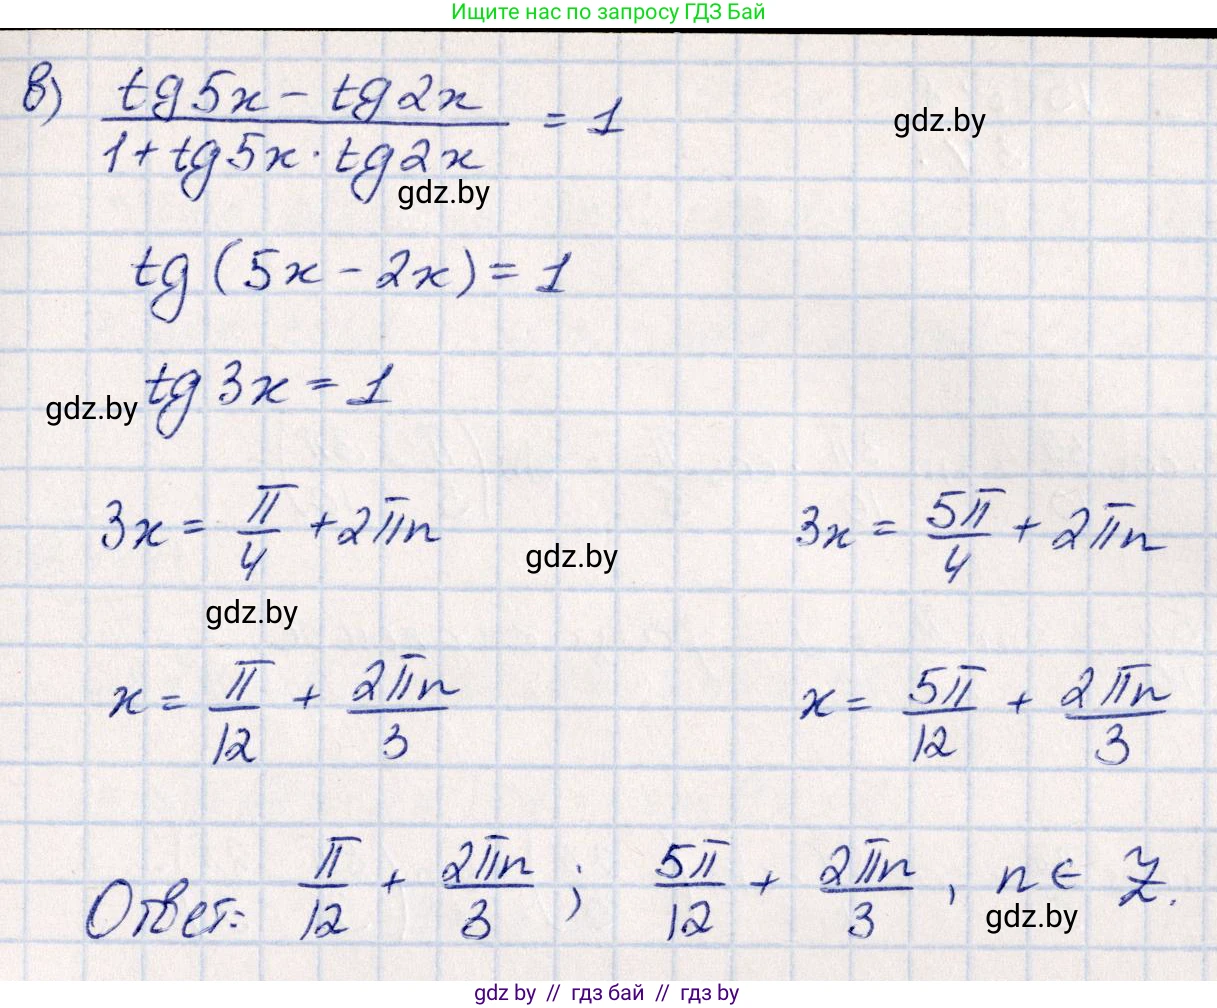 Ищите нас по запросу ГДЗ Бай
в) (tg5x - tg2x)/(1 + tg5x · tg2x) = 1
gdz.by
gdz.by
tg (5x - 2x) = 1
tg 3x = 1
gdz.by
3x = π/4 + 2πn 3x = 5π/4 + 2πn
gdz.by
gdz.by
x = π/12 + 2πn/3 x = 5π/12 + 2πn/3
Ответ: π/12 + 2πn/3 ; 5π/12 + 2πn/3 , n ∈ Z.
gdz.by
gdz by // гдз бай // гдз by